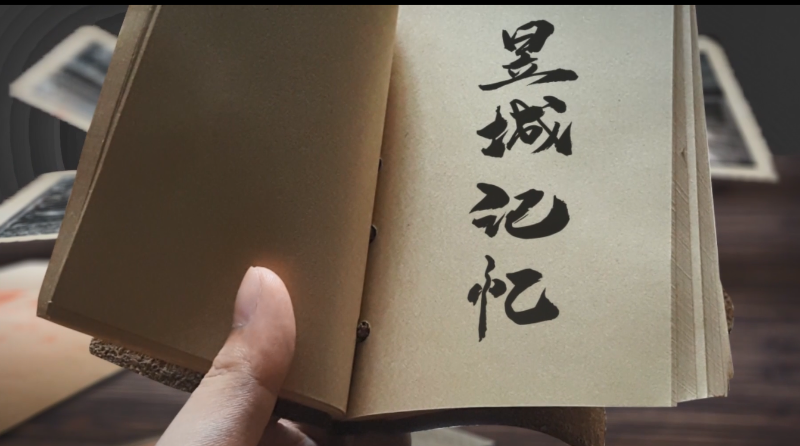 昱城记忆